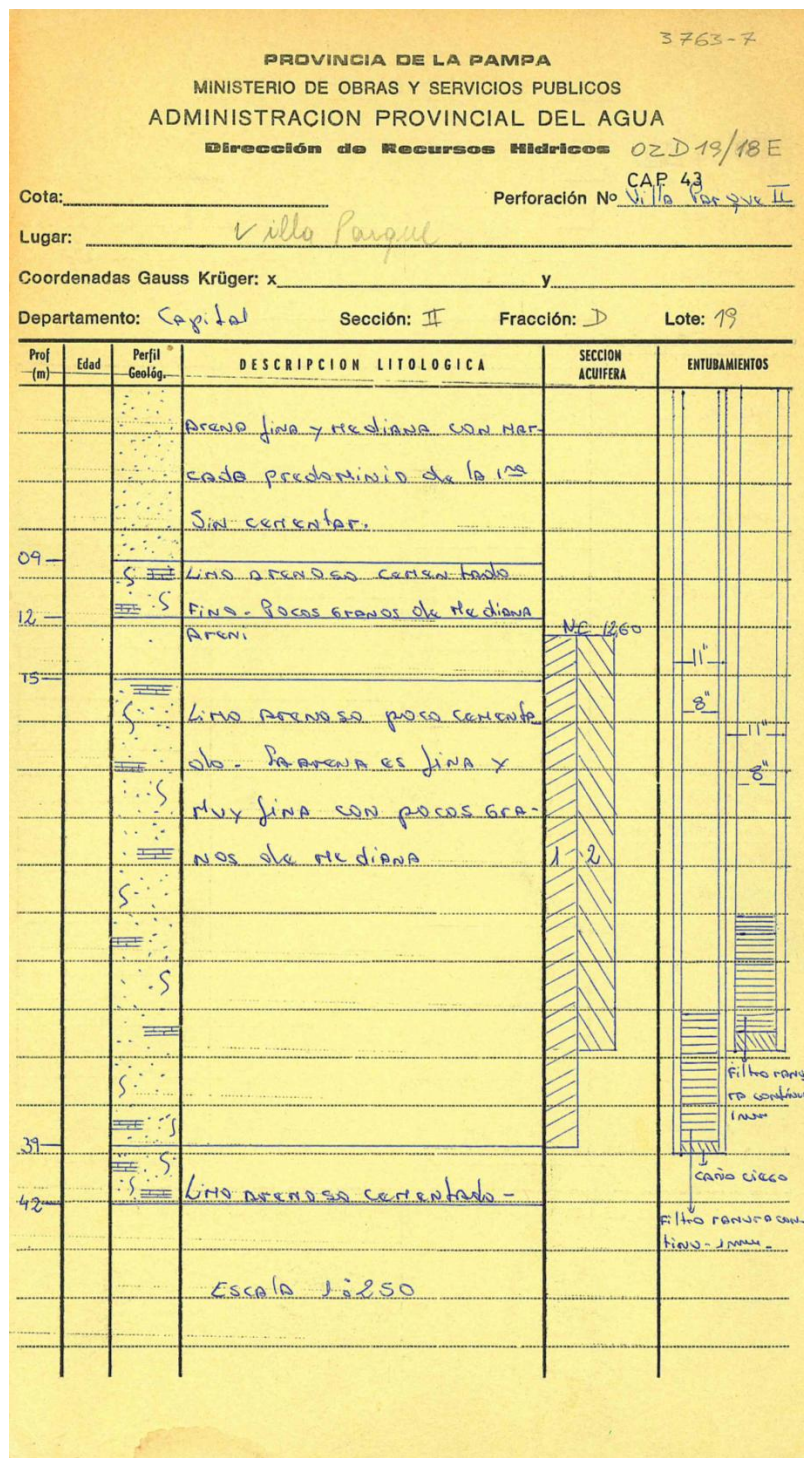 3763-7
PROVINCIA DE LA PAMPA
MINISTERIO DE OBRAS Y SERVICIOS PUBLICOS
ADMINISTRACION PROVINCIAL DEL AGUA
Dirección de Recursos Hidricos
02D19/18E
CAP 43
Cota:
Perforación No Villa Parque II
Lugar: Villa Parque
Coordenadas Gauss Krüger: x y
Departamento: Capital Sección: II Fracción: D Lote: 19
Prof (m) Edad Perfil Geológ. DESCRIPCION LITOLOGICA SECCION ACUIFERA ENTUBAMIENTOS
Arena fina y mediana con mar-
cada predominio de la 1ra
Sin cementar.
09
Limo arenoso cementado
Fina - Pocos granos de mediana
12
Areni
N.E 12,60
15
11"
8"
11"
8"
Limo arenoso poco cementa
do - La arena es fina y
muy fina con pocos gra-
nos de mediana
1 2
Filtro ranu
ra continua
1 mm
39
caño ciego
Limo arenoso cementado -
42
Filtro ranura con-
tinu - 1 mm -
Escala 1:250